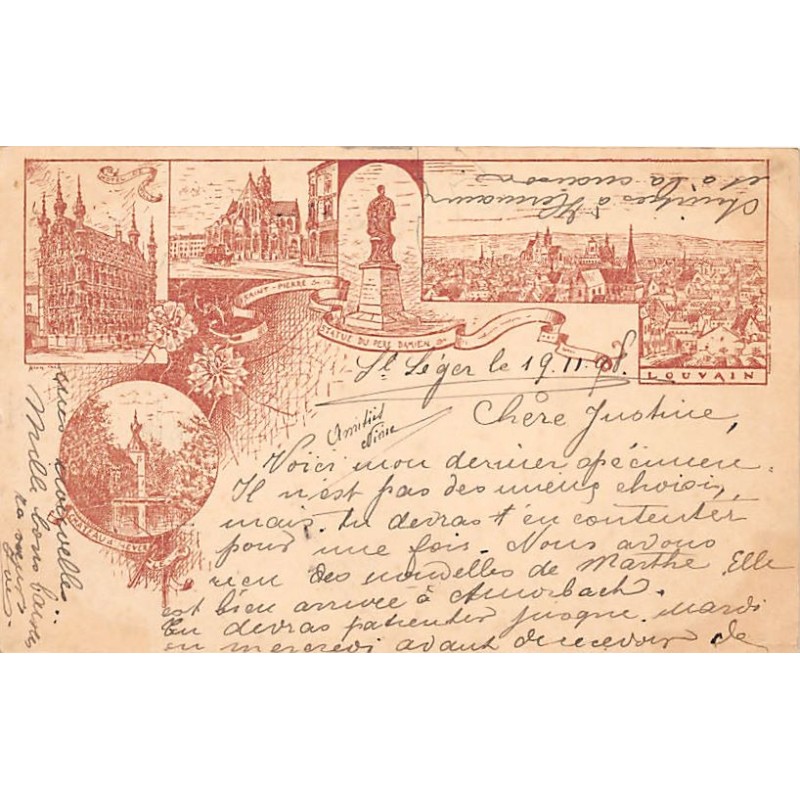 SAINT-PIERRE
STATUE DU PERE DAMIEN
LOUVAIN
St Léger le 19.11.98.
Amitiés
Chère Justine,
Voici mon dernier spécimen.
Il n'est pas des mieux choisi,
mais tu devras t'en contenter
pour une fois. Nous avons
reçu des nouvelles de Marthe. Elle
est bien arrivée à Amorbach.
Tu devras patienter jusque mardi
ou mercredi avant de recevoir de
mes nouvelles.
Mille bons baisers
ta sœur
Zoé.
à Hermann
et à la cuisson
CHATEAU